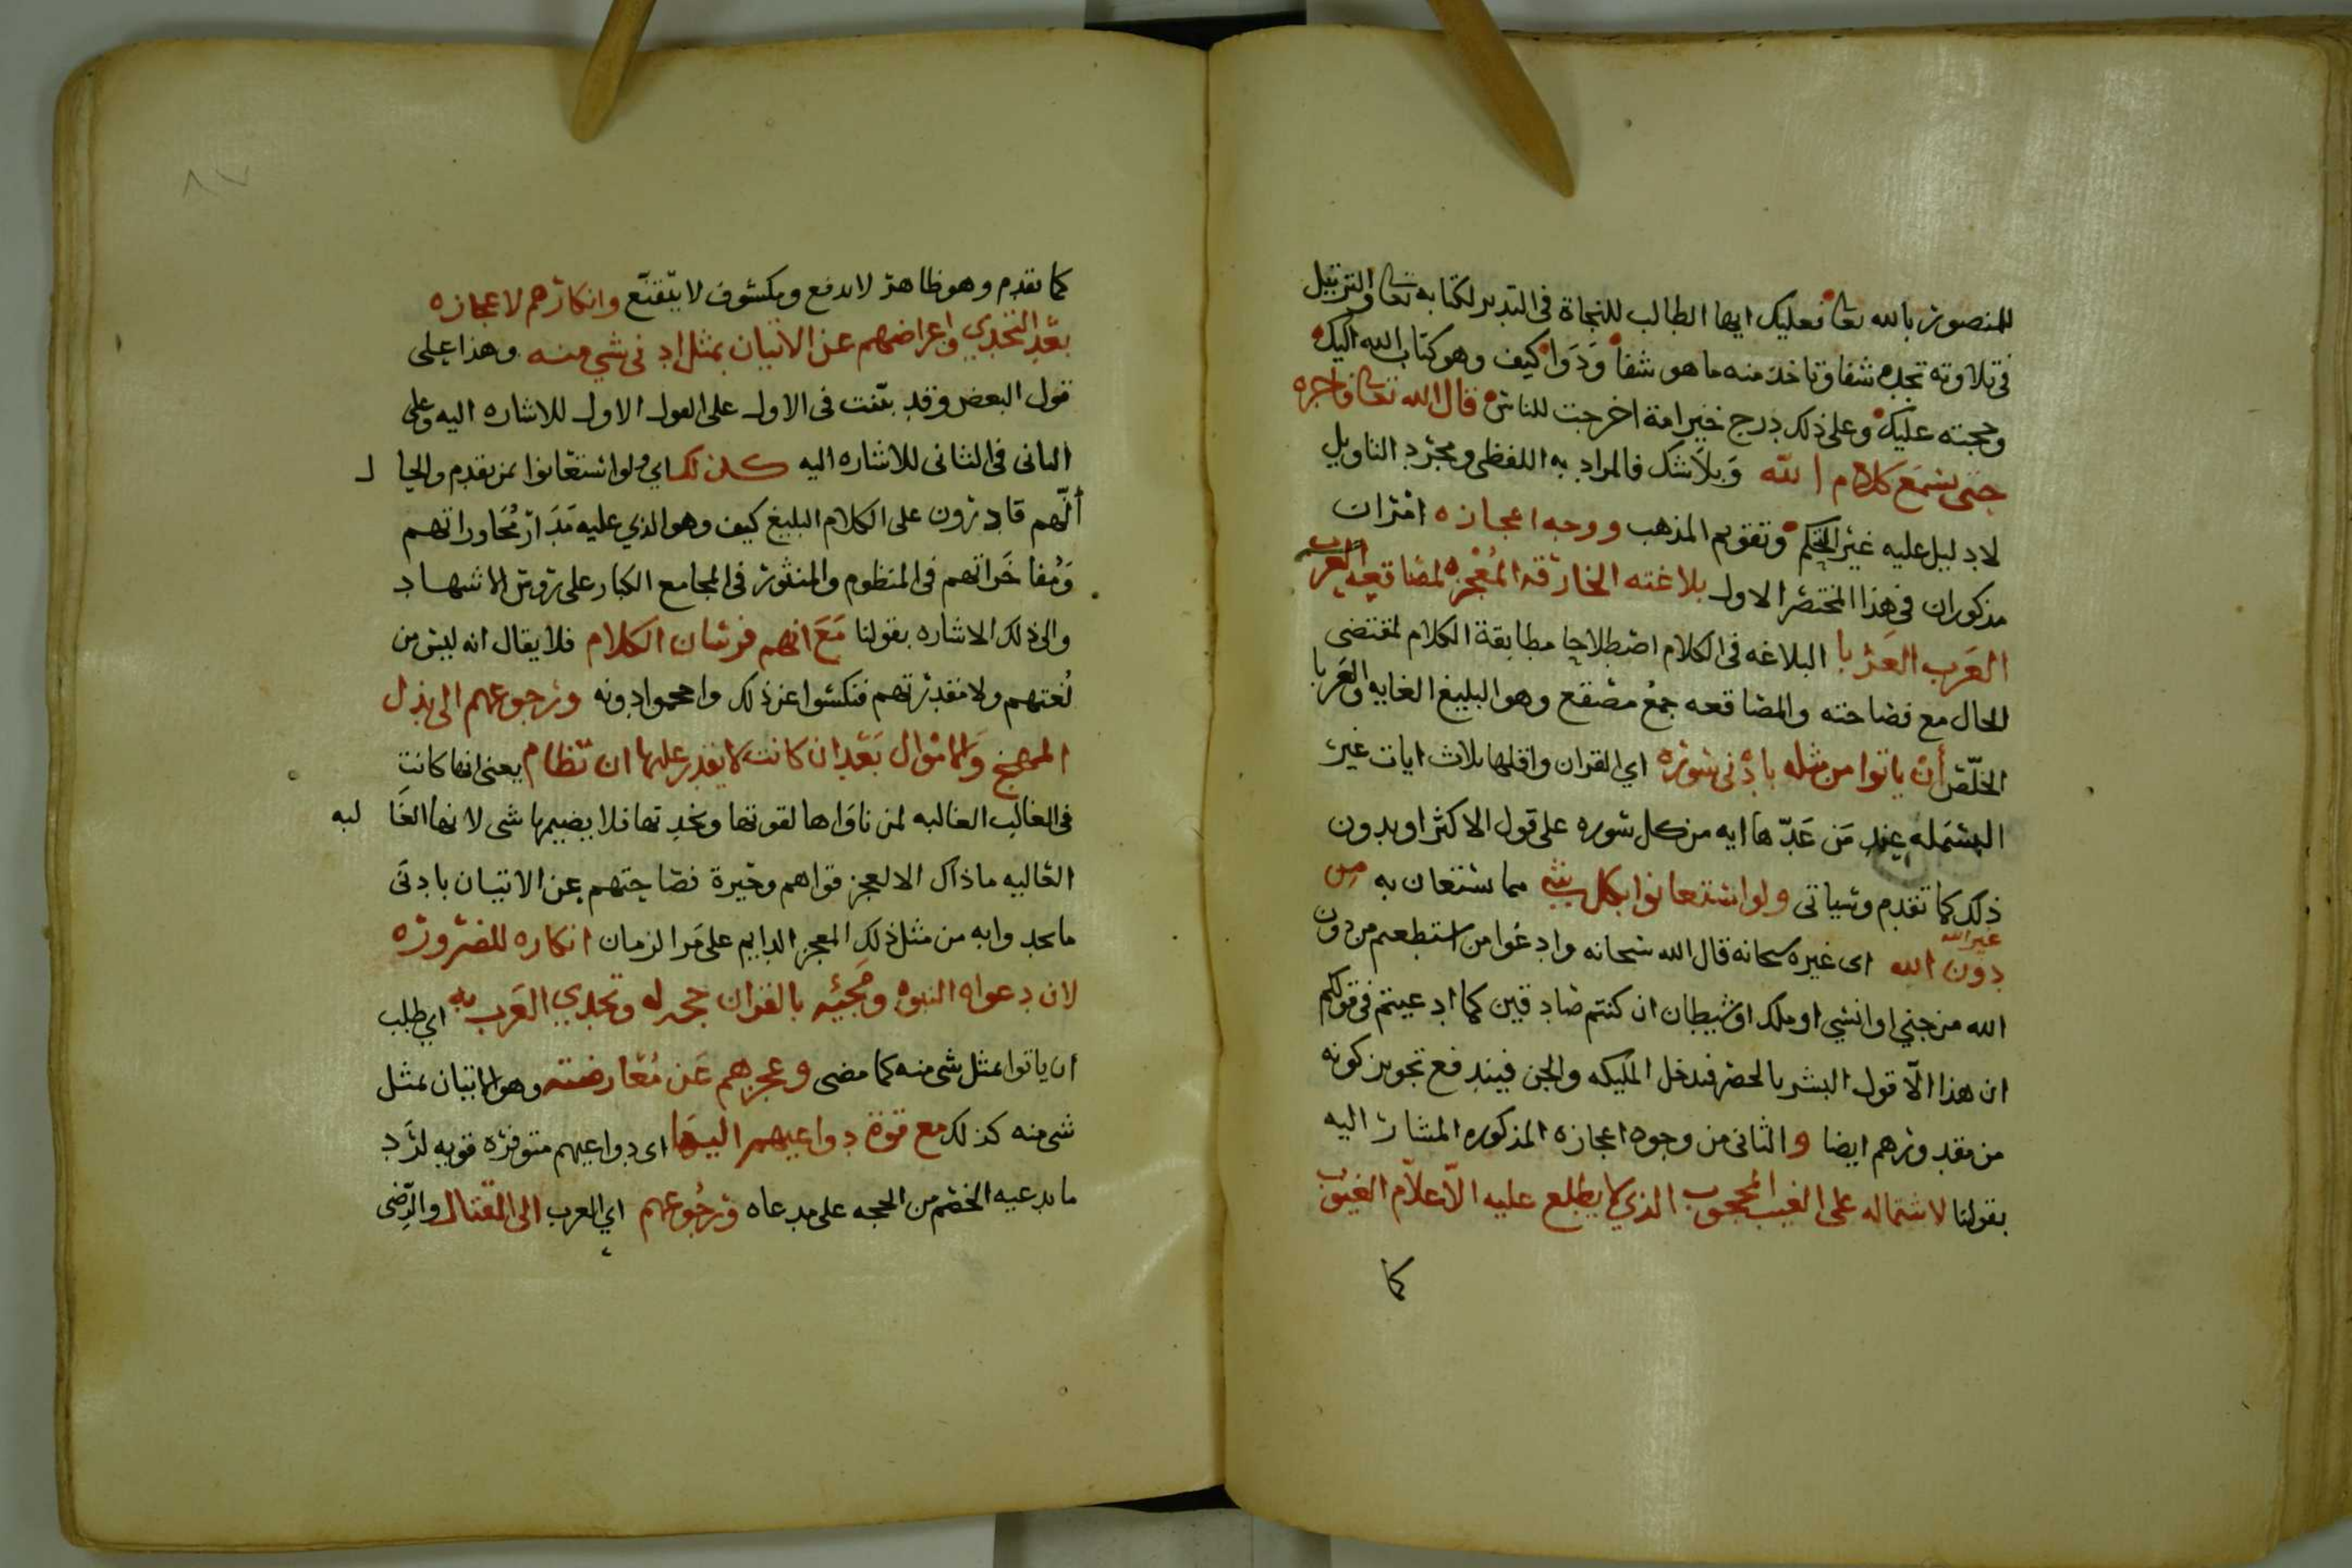 للمنصور بالله تعالى فعليك ايها الطالب للنجاة فى التدبر لكتابه تعالى والترتيل
فى تلاوته تجده شفا وتاخذ منه ما هو شفا ودوا كيف وهو كتاب الله اليك
وحجته عليك وعلى ذلك درج خير امة اخرجت للناس قال الله تعالى فاجره
حتى يسمع كلام الله وبلا شك فالمراد به اللفظى ومجرد التاويل
لا دليل عليه غير التحكم وتقويم المذهب ووجه اعجازه امران
مذكوران فى هذا المختصر الاول بلاغته الخارقه المعجزه لمصاقعه العرب
العرب العربا البلاغه فى الكلام اصطلاحا مطابقة الكلام لمقتضى
الحال مع فصاحته والمصاقعه جمع مصقع وهو البليغ الغايه والعربا
الخلّص أن ياتوا من مثله بادنى سوره اي القران واقلها ثلاث ايات غير
البسمله عند من عدّها ايه من كل سوره على قول الاكثر او بدون
ذلك كما تقدم وسياتى ولو استعانوا بكل شي مما يستعان به من
غير الله
دون الله اى غيره سبحانه قال الله سبحانه وادعوا من استطعتم من دون
الله من جني او انسي او ملك او شيطان ان كنتم صادقين كما ادعيتم فى قولكم
ان هذا الا قول البشر بالحصر فيدخل المليكه والجن فيندفع تجويز كونه
من مقدورهم ايضا والثانى من وجوه اعجازه المذكوره المشار اليه
بقولنا لاشتماله على الغيب المحجوب الذي لا يطلع عليه الاّ علاّم الغيوب
كما
٨٧
كما تقدم وهو ظاهر لا يدفع ومكشوف لا يتقنّع وانكارهم لاعجازه
بعد التحدي واعراضهم عن الاتيان بمثل ادنى شي منه وهذا على
قول البعض وقد بيّنت فى الاول على القول الاول للاشاره اليه وعلى
الثانى فى الثانى للاشاره اليه كذلك اي ولو استعانوا بمن تقدم والحا ل
أنّهم قادرون على الكلام البليغ كيف وهو الذي عليه مدار محاوراتهم
ومفاخراتهم فى المنظوم والمنثور فى المجامع الكبار على روس الاشهاد
والى ذلك الاشاره بقولنا مع انهم فرسان الكلام فلا يقال انه ليس من
لغتهم ولا مقدرتهم فنكسوا عن ذلك واحجموا دونه ورجوعهم الى بذل
المهج والاموال بعد ان كانت لا يقدر عليها ان تظام يعنى انها كانت
فى الغالب الغالبه لمن ناواها لقوتها ونجدتها فلا يضيمها شى لانها الغا لبه
الغاليه ما ذاك الا لعجز قواهم وحيرة فصاحتهم عن الاتيان بادنى
ما تحدوا به من مثل ذلك المعجز الدايم على مر الزمان انكاره للضروره
لان دعواه النبوه ومجيئه بالقران حجه له وتحدي العرب به اي طلب
ان ياتوا بمثل شى منه كما مضى وعجزهم عن معارضته وهو الاتيان بمثل
شى منه كذلك مع قوة دواعيهم اليها اى دواعيهم متوفره قويه لرد
ما يدعيه الخصم من الحجه على مدعاه ورجوعهم اي العرب الى القتال والرضى